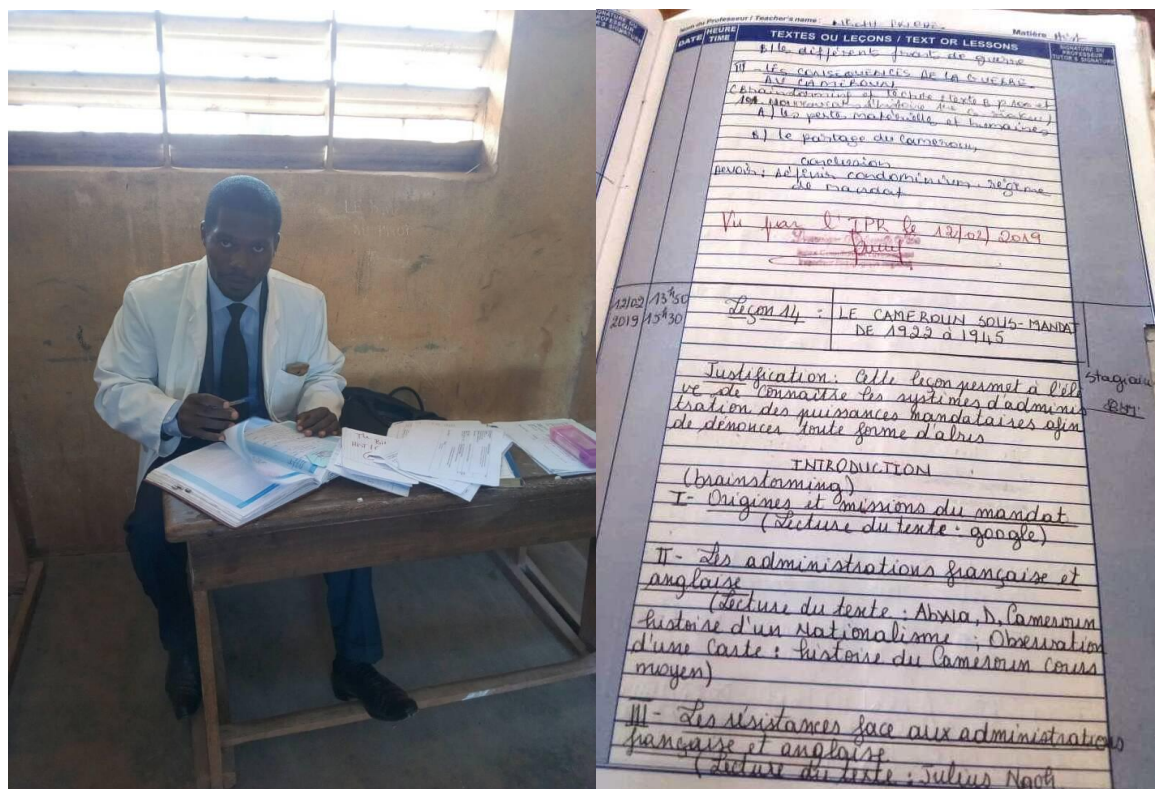 Nom du Professeur / Teacher's name :
Matière Hist
DATE
HEURE
TIME
TEXTES OU LEÇONS / TEXT OR LESSONS
SIGNATURE DU
PROFESSEUR
TUTOR'S SIGNATURE
B/ le différents front de guerre
III - LES CONSEQUENCES DE LA GUERRE
AU CAMEROUN
(Brainstorming et lecture texte B p 100 et
A) les perte matérielle et humaines
B) le partage du Cameroun,
conclusion
Devoir : définir condominium, régime
de mandat
Vu par l'IPR le 12/02/2019
12/02
2019
13h50
15h30
Leçon 14 :
LE CAMEROUN SOUS-MANDAT
DE 1922 à 1945
Stagiaire
Justification : Cette leçon permet à l'élè
ve de connaître les systèmes d'adminis
tration des puissances mandataires afin
de dénoncer toute forme d'abris
INTRODUCTION
(brainstorming)
I- Origines et missions du mandat
(Lecture du texte : google)
II- Les administrations française et
anglaise
(Lecture du texte : Abwa, D, Cameroun
histoire d'un Nationalisme ; Observation
d'une carte : histoire du Cameroun cours
moyen)
III- Les résistances face aux administrations
française et anglaise
(Lecture du texte : Julius Ngoh.